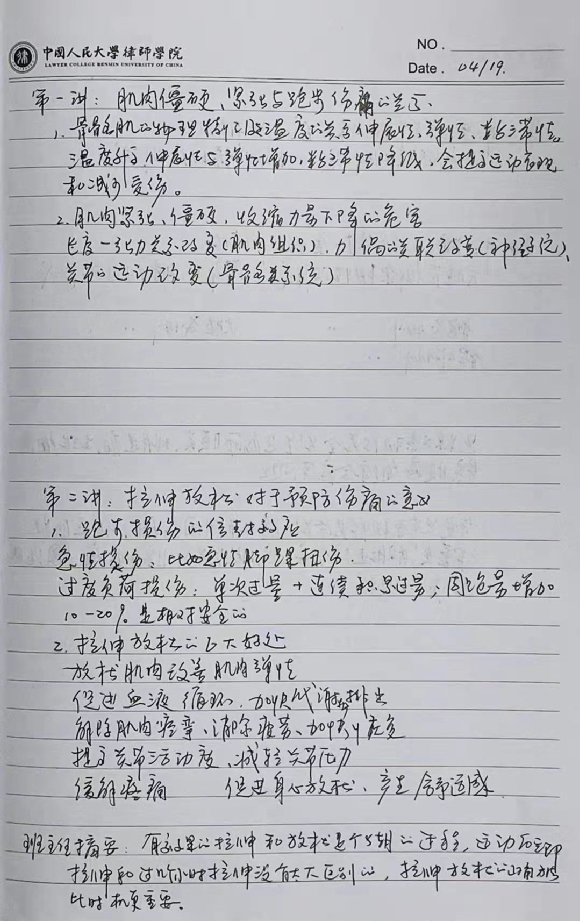 中國人民大學律師學院
LAWYER COLLEGE RENMIN UNIVERSITY OF CHINA
NO.
Date. 04/19.
第一讲：肌肉僵硬、紧张与跑步伤痛的关系
1. 骨骼肌的物理特征及温度的关系 伸展性、弹性、黏滞性
温度升高 伸展性与弹性增加，黏滞性降低，会提高运动表现
和减少受伤。
2. 肌肉紧张、僵硬，收缩力量下降的危害
长度一张力关系改变（肌肉组织），力偶的关联改善（神经系统）、
关节的运动改变（骨骼关系统）
第二讲：拉伸放松对于预防伤痛的意义
1. 跑步损伤的信封效应
急性损伤：比如急性脚踝扭伤.
过度负荷损伤：单次过量 + 连续积累过量；周跑量增加
10-20% 是相对安全的
2. 拉伸放松的6大好处
放松肌肉改善肌肉弹性
促进血液循环，加快代谢排出
解除肌肉痉挛、消除疲劳、加快恢复
提高关节活动度，减轻关节压力
缓解疼痛 促进身心放松、产生舒适感
班主任摘要：有效果的拉伸和放松是个长期的过程，运动后立即
拉伸和过几小时拉伸没有太大区别的，拉伸放松的
比时机更重要。